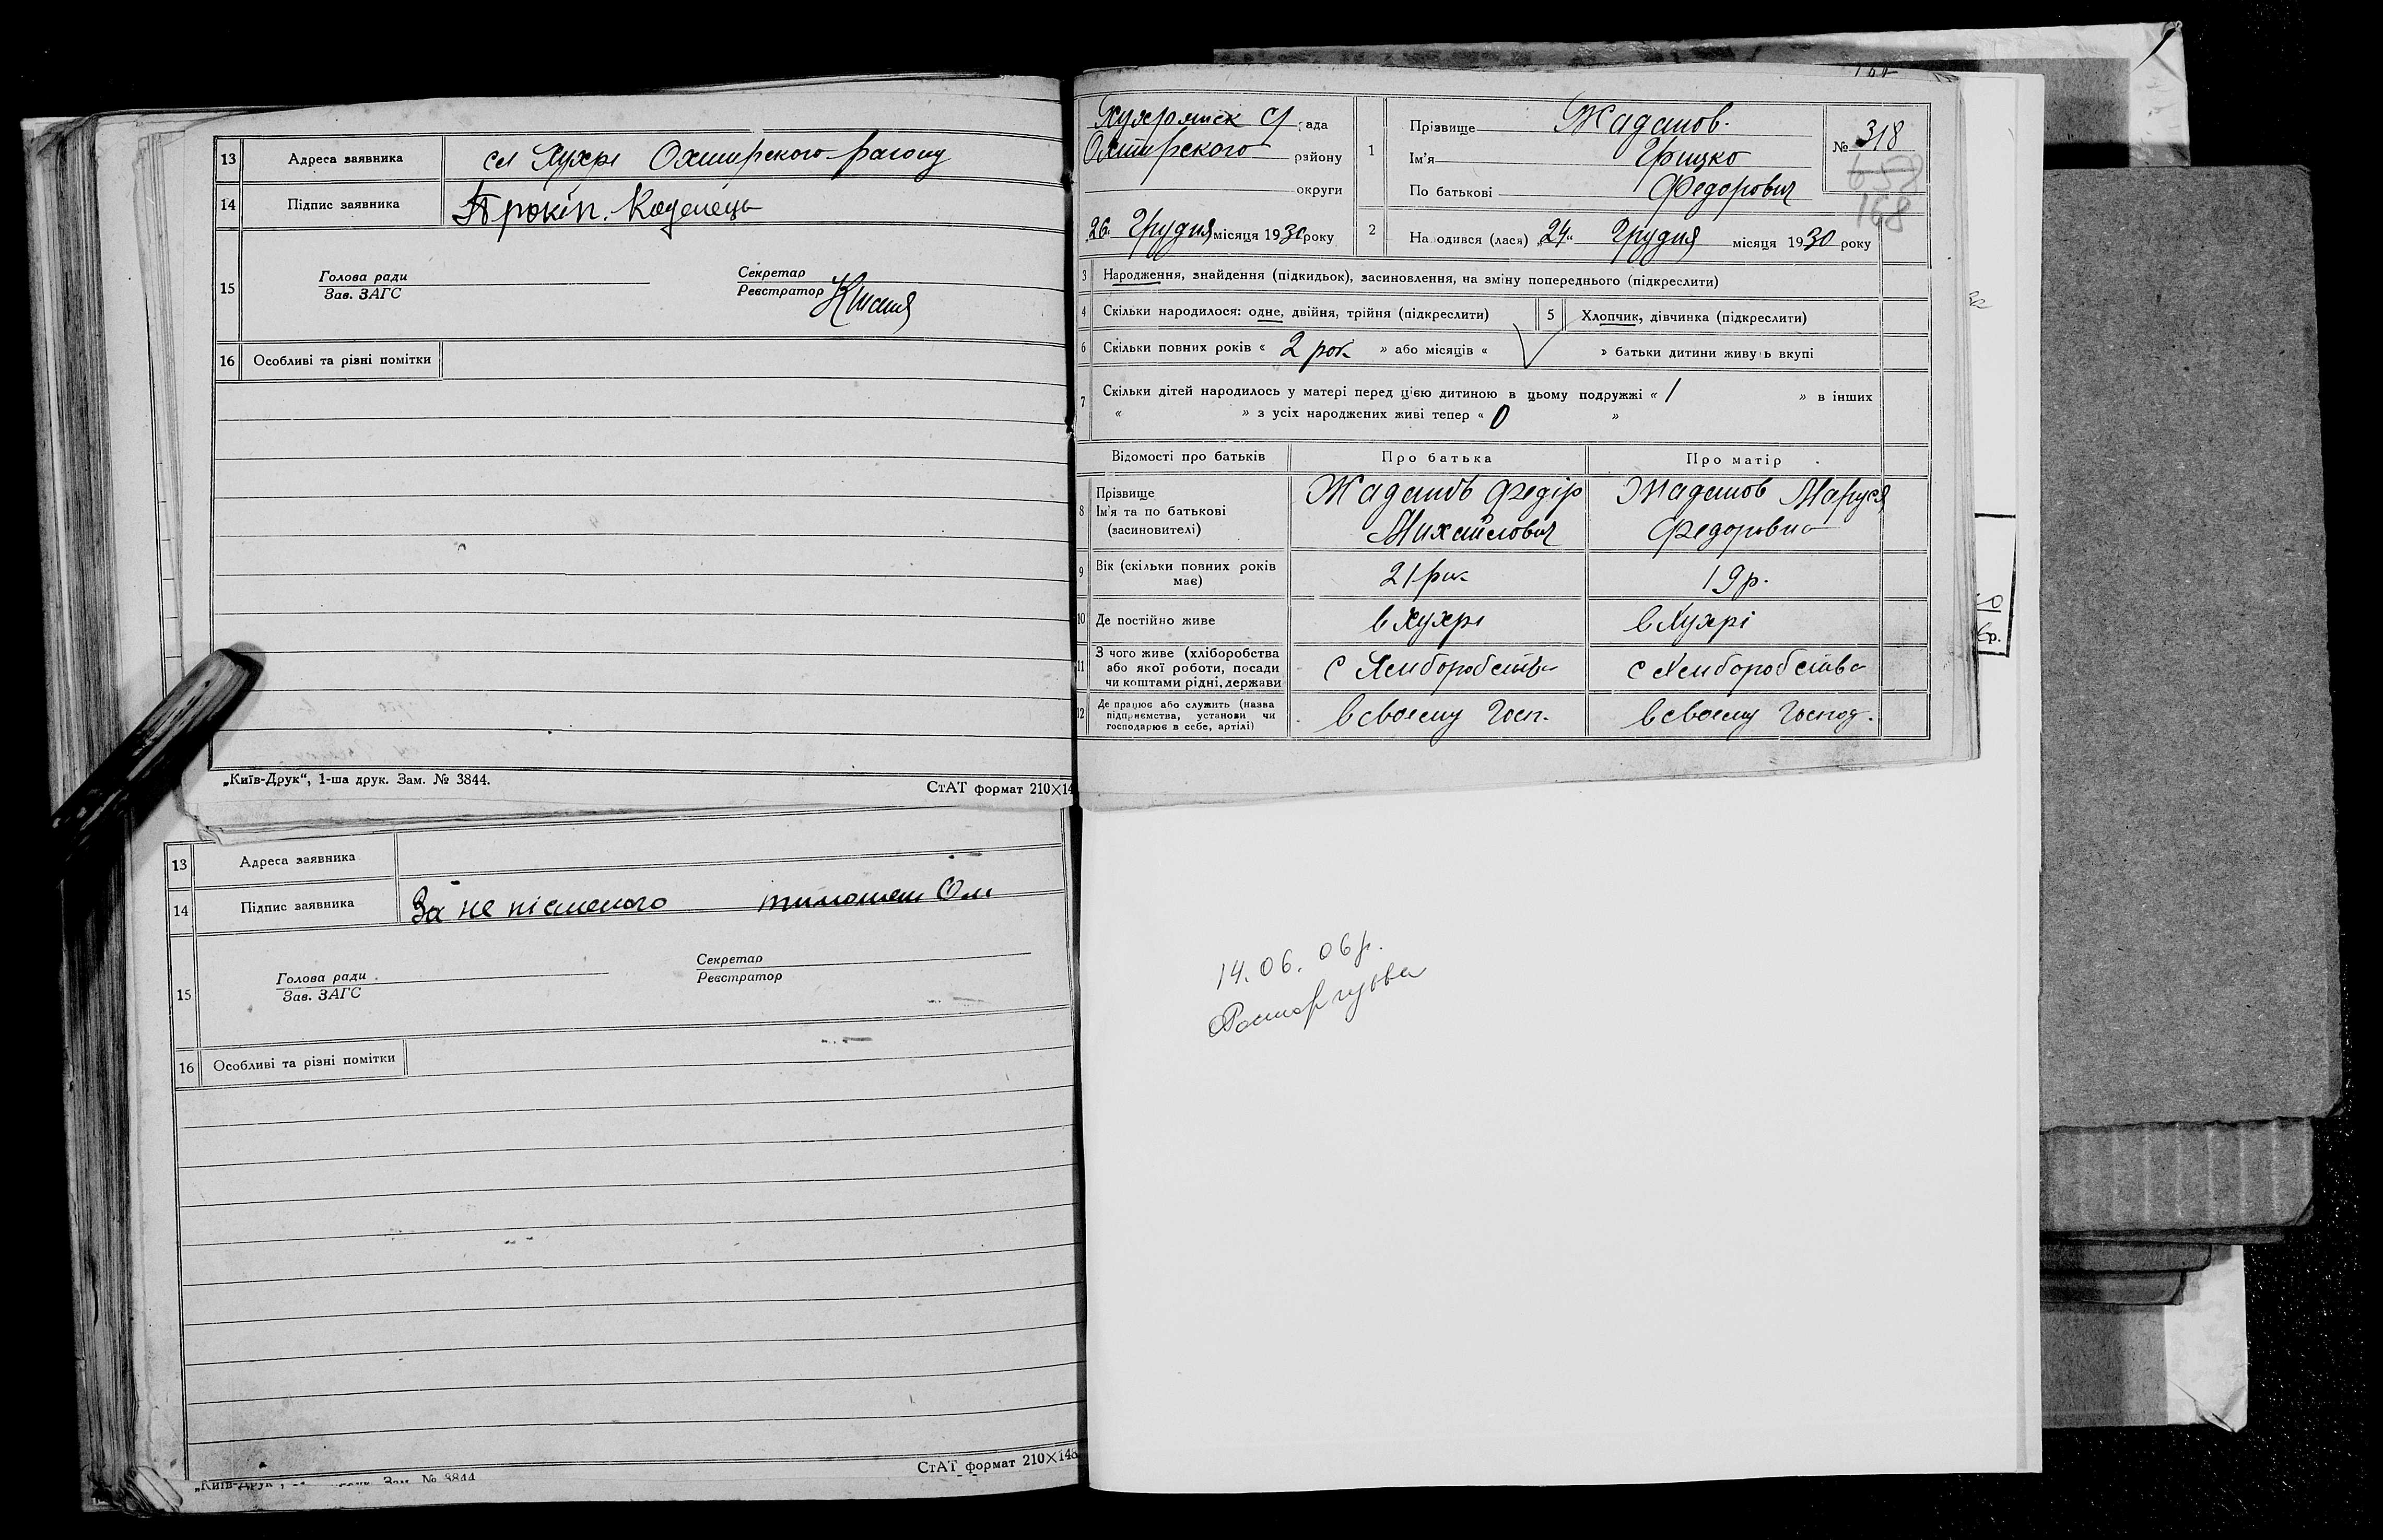 13 Адреса заявника сл Хухрі Охтирского району
14 Підпис заявника Прокіп. Коденець
15 Голова ради
Зав. ЗАГС
Секретар
Реєстратор
16 Особливі та різні помітки
„Київ-Друк“, 1-ша друк. Зам. № 3844.
СтАТ формат 210×14
13 Адреса заявника
14 Підпис заявника За не пісменого
15 Голова ради
Зав. ЗАГС
Секретар
Реєстратор
16 Особливі та різні помітки
„Київ-Друк“, Зам. № 3844
СтАТ формат 210×148
Хухрянск С/рада
Охтирского району
округи
26. Грудня місяця 1930 року
1 Прізвище Жаданов.
Ім'я Грицко
По батькові Федорович
№ 318
168
2 Народився (лася) „24“ Грудня місяця 1930 року
3 Народження, знайдення (підкидьок), засиновлення, на зміну попереднього (підкреслити)
4 Скільки народилося: одне, двійня, трійня (підкреслити)
5 Хлопчик, дівчинка (підкреслити)
6 Скільки повних років « 2 рок » або місяців « » батьки дитини живуть вкупі
7 Скільки дітей народилось у матері перед цією дитиною в цьому подружжі « 1 » в інших
« » з усіх народжених живі тепер « 0 »
Відомості про батьків Про батька Про матір
8 Прізвище Ім'я та по батькові (засиновителі) Жаданов Федір Михайлович Жаданов Маруся Федоровна
9 Вік (скільки повних років має) 21 рік 19 р.
10 Де постійно живе в Хухрі в Хухрі
11 З чого живе (хліборобства або якої роботи, посади чи коштами рідні, держави с Хлиборобства с Хлиборобства
12 Де працює або служить (назва підприємства, установи чи господарює в себе, артілі) в своєму Госп. в своєму Господ.
14. 06. 06 р.
Расторгуєва